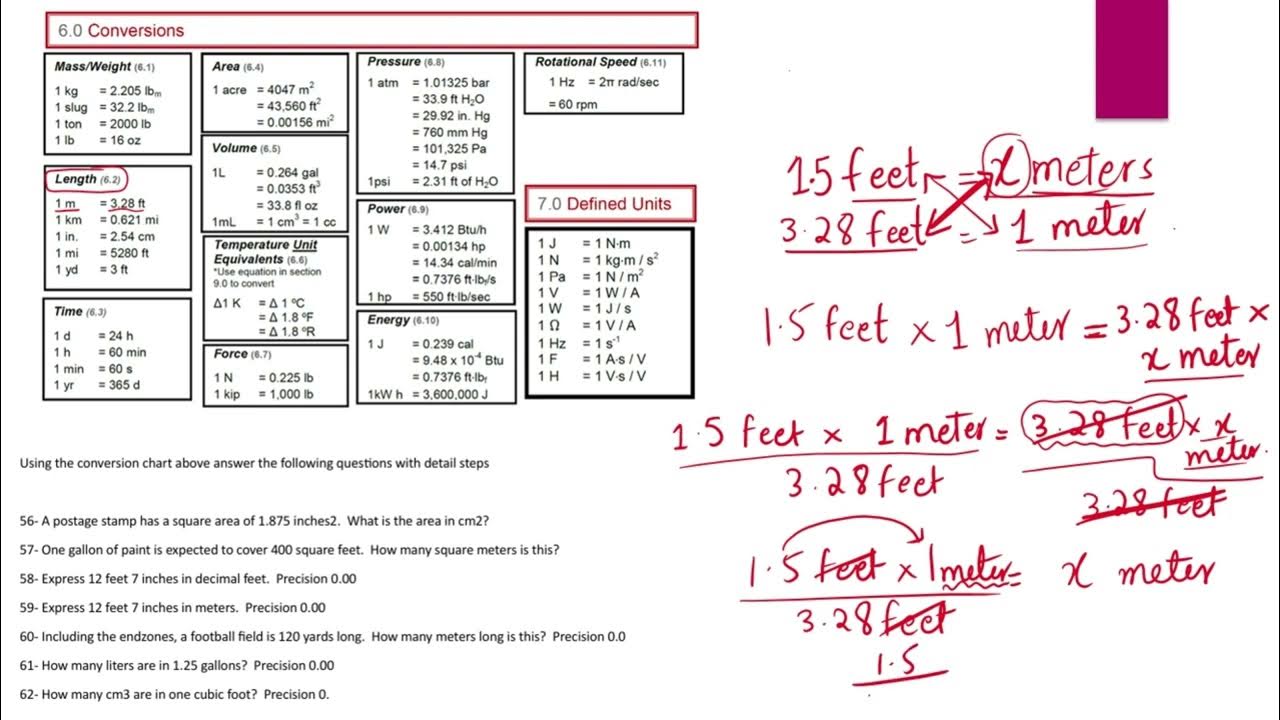 6.0 Conversions
Mass/Weight (6.1)
1 kg = 2.205 lbₘ
1 slug = 32.2 lbₘ
1 ton = 2000 lb
1 lb = 16 oz
Length (6.2)
1 m = 3.28 ft
1 km = 0.621 mi
1 in. = 2.54 cm
1 mi = 5280 ft
1 yd = 3 ft
Time (6.3)
1 d = 24 h
1 h = 60 min
1 min = 60 s
1 yr = 365 d
Area (6.4)
1 acre = 4047 m²
= 43,560 ft²
= 0.00156 mi²
Volume (6.5)
1L = 0.264 gal
= 0.0353 ft³
= 33.8 fl oz
1mL = 1 cm³ = 1 cc
Temperature Unit
Equivalents (6.6)
*Use equation in section
9.0 to convert
Δ1 K = Δ 1 ºC
= Δ 1.8 ºF
= Δ 1.8 ºR
Force (6.7)
1 N = 0.225 lb
1 kip = 1,000 lb
Pressure (6.8)
1 atm = 1.01325 bar
= 33.9 ft H₂O
= 29.92 in. Hg
= 760 mm Hg
= 101,325 Pa
= 14.7 psi
1psi = 2.31 ft of H₂O
Power (6.9)
1 W = 3.412 Btu/h
= 0.00134 hp
= 14.34 cal/min
= 0.7376 ft·lbf/s
1 hp = 550 ft·lb/sec
Energy (6.10)
1 J = 0.239 cal
= 9.48 x 10⁻⁴ Btu
= 0.7376 ft·lbf
1kW h = 3,600,000 J
Rotational Speed (6.11)
1 Hz = 2π rad/sec
= 60 rpm
7.0 Defined Units
1 J = 1 N·m
1 N = 1 kg·m / s²
1 Pa = 1 N / m²
1 V = 1 W / A
1 W = 1 J / s
1 Ω = 1 V / A
1 Hz = 1 s⁻¹
1 F = 1 A·s / V
1 H = 1 V·s / V
Using the conversion chart above answer the following questions with detail steps
56- A postage stamp has a square area of 1.875 inches2. What is the area in cm2?
57- One gallon of paint is expected to cover 400 square feet. How many square meters is this?
58- Express 12 feet 7 inches in decimal feet. Precision 0.00
59- Express 12 feet 7 inches in meters. Precision 0.00
60- Including the endzones, a football field is 120 yards long. How many meters long is this? Precision 0.0
61- How many liters are in 1.25 gallons? Precision 0.00
62- How many cm3 are in one cubic foot? Precision 0.
1.5 feet = x meters
3.28 feet = 1 meter
1.5 feet x 1 meter = 3.28 feet x
x meter
1.5 feet x 1 meter = 3.28 feet x x
meter.
3.28 feet 3.28 feet
1.5 feet x 1 meter = x meter
3.28 feet
1.5